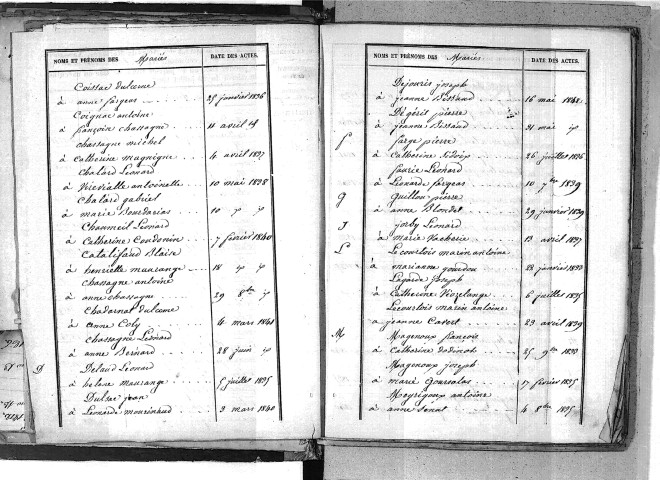 NOMS ET PRÉNOMS DES Mariés DATE DES ACTES.
Coissac dulcème
à anne fargeas 25 janvier 1836
Coignac antoine
à françoise chassagne 11 avril
chassagne michel
à Catherine magnigne 4 avril 1837
Chalard Léonard
à Vrevialle antoinette 10 mai 1838
Chalard gabriel
à marie Bourdarias 10
Chaumeil Léonard
à Catherine Coudonin 7 février 1840
Catalifaud Blaise
à henriette maurange 18
chassagne antoine
à anne chassagne 29 8bre
Chadernat dulcème
à anne Coly 4 mars 1841
chassagne Léonard
à anne Bernard 28 juin
D Delaud Léonard
à helene maurange 5 juillet 1835
Dulsac jean
à Léonarde mourinhaud 3 mars 1840
NOMS ET PRÉNOMS DES Mariés DATE DES ACTES.
Dejouris joseph
à jeanne Bessaud 16 mai 1841
Dégérit pierre
à jeanne Bessaud 31 mai
f farge pierre
à Catherine 26 juillet 1836
faurie Léonard
à Léonarde fargeas 10 7bre 1839
G Guillou pierre
à anne Blondet 29 janvier 1839
J jorby Léonard
à marie Vacherie 13 avril 1837
L Lecourtois marin antoine
à marianne gourdou 28 janvier 1833
Lagarde joseph
à Catherine Vezelange 6 juillet 1835
Lecourtois marin antoine
à jeanne Cavert 23 avril 1839
M Magenoux françois
à Catherine dodinot 25 9bre 1833
Magenoux joseph
à marie goursolas 17 février 1835
Meyrigoux antoine
à anne 4 8bre 1835